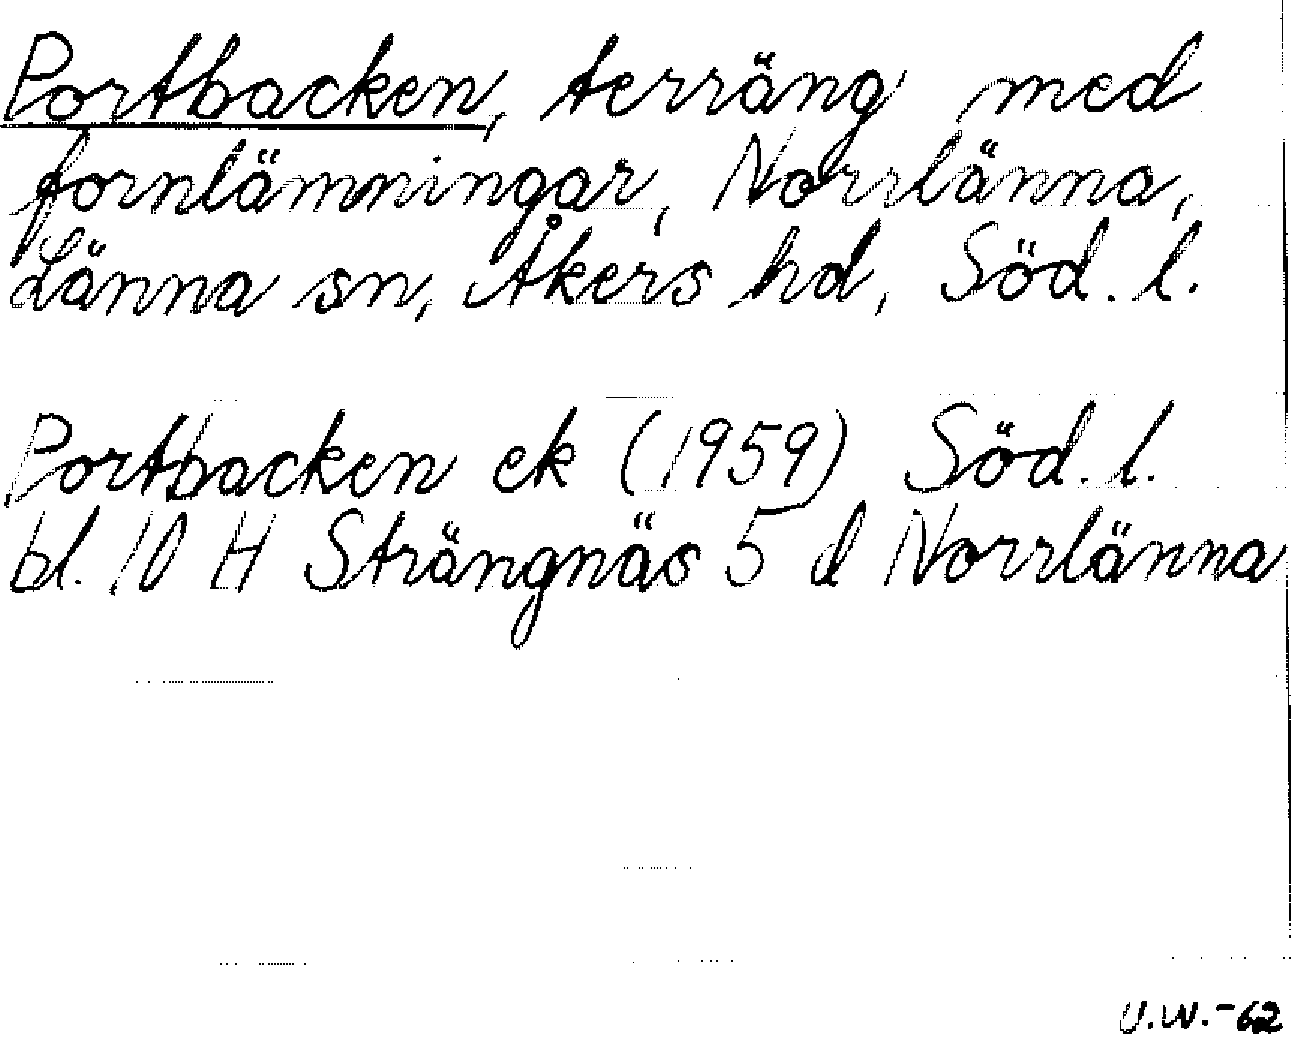 Portbacken, terräng med
fornlämningar, Norrlänna,
Länna sn, Åkers hd, Söd. l.
Portbacken ek (1959) Söd. l.
bl. 10 H Strängnäs 5 d Norrlänna
U.W.-62